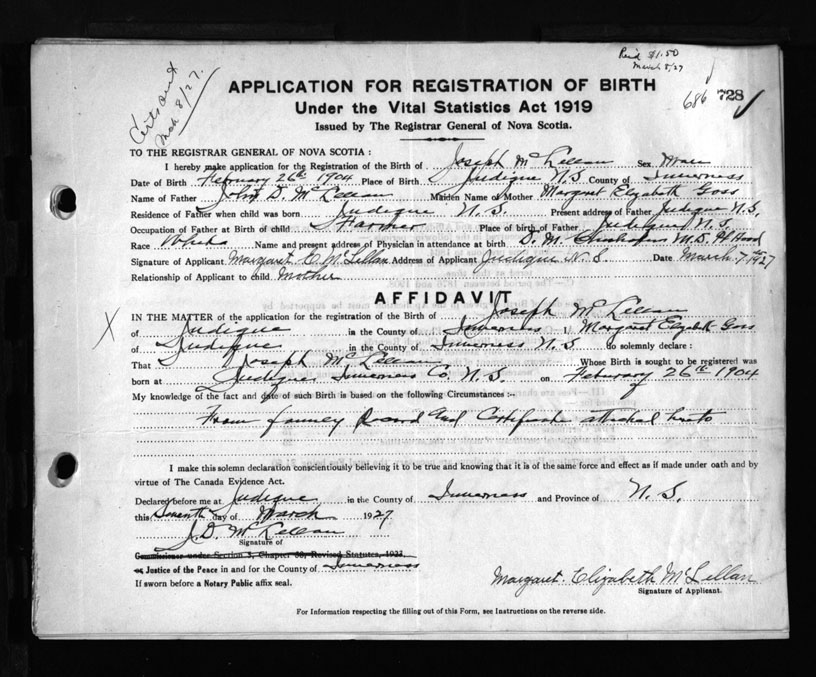 Paid $1.50
March 8/27
Certs sent
Mch 8/27.
686 728
APPLICATION FOR REGISTRATION OF BIRTH
Under the Vital Statistics Act 1919
Issued by The Registrar General of Nova Scotia.
TO THE REGISTRAR GENERAL OF NOVA SCOTIA :
I hereby make application for the Registration of the Birth of Joseph McLellan Sex Male
Date of Birth February 26th 1904 Place of Birth Judique N.S. County of Inverness
Name of Father John D. McLellan Maiden Name of Mother Margaret Elizabeth Goss
Residence of Father when child was born Judique N.S. Present address of Father Judique N.S.
Occupation of Father at Birth of child Farmer Place of birth of Father Judique N.S.
Race White Name and present address of Physician in attendance at birth D. M. Chisholm M.D. Pt Hood
Signature of Applicant Margaret E. McLellan Address of Applicant Judique N.S. Date March 7th 1927
Relationship of Applicant to child Mother
AFFIDAVIT
X
IN THE MATTER of the application for the registration of Birth of Joseph McLellan
of Judique in the County of Inverness I Margaret Elizabeth Goss
of Judique in the County of Inverness N.S. do solemnly declare :
That Joseph McLellan Whose Birth is sought to be registered was
born at Judique Inverness Co. N.S. on February 26th 1904
My knowledge of the fact and date of such Birth is based on the following Circumstances :-
From Record and Certificate attached
I make this solemn declaration conscientiously believing it to be true and knowing that it is of the same force and effect as if made under oath and by
virtue of The Canada Evidence Act.
Declared before me at Judique in the County of Inverness and Province of N.S.
this Seventh day of March 1927
J. D. McLellan
Signature of
Commissioner under Section 3, Chapter 38, Revised Statutes, 1923,
or Justice of the Peace in and for the County of Inverness
If sworn before a Notary Public affix seal.
Margaret Elizabeth McLellan
Signature of Applicant.
For Information respecting the filling out of this Form, see Instructions on the reverse side.